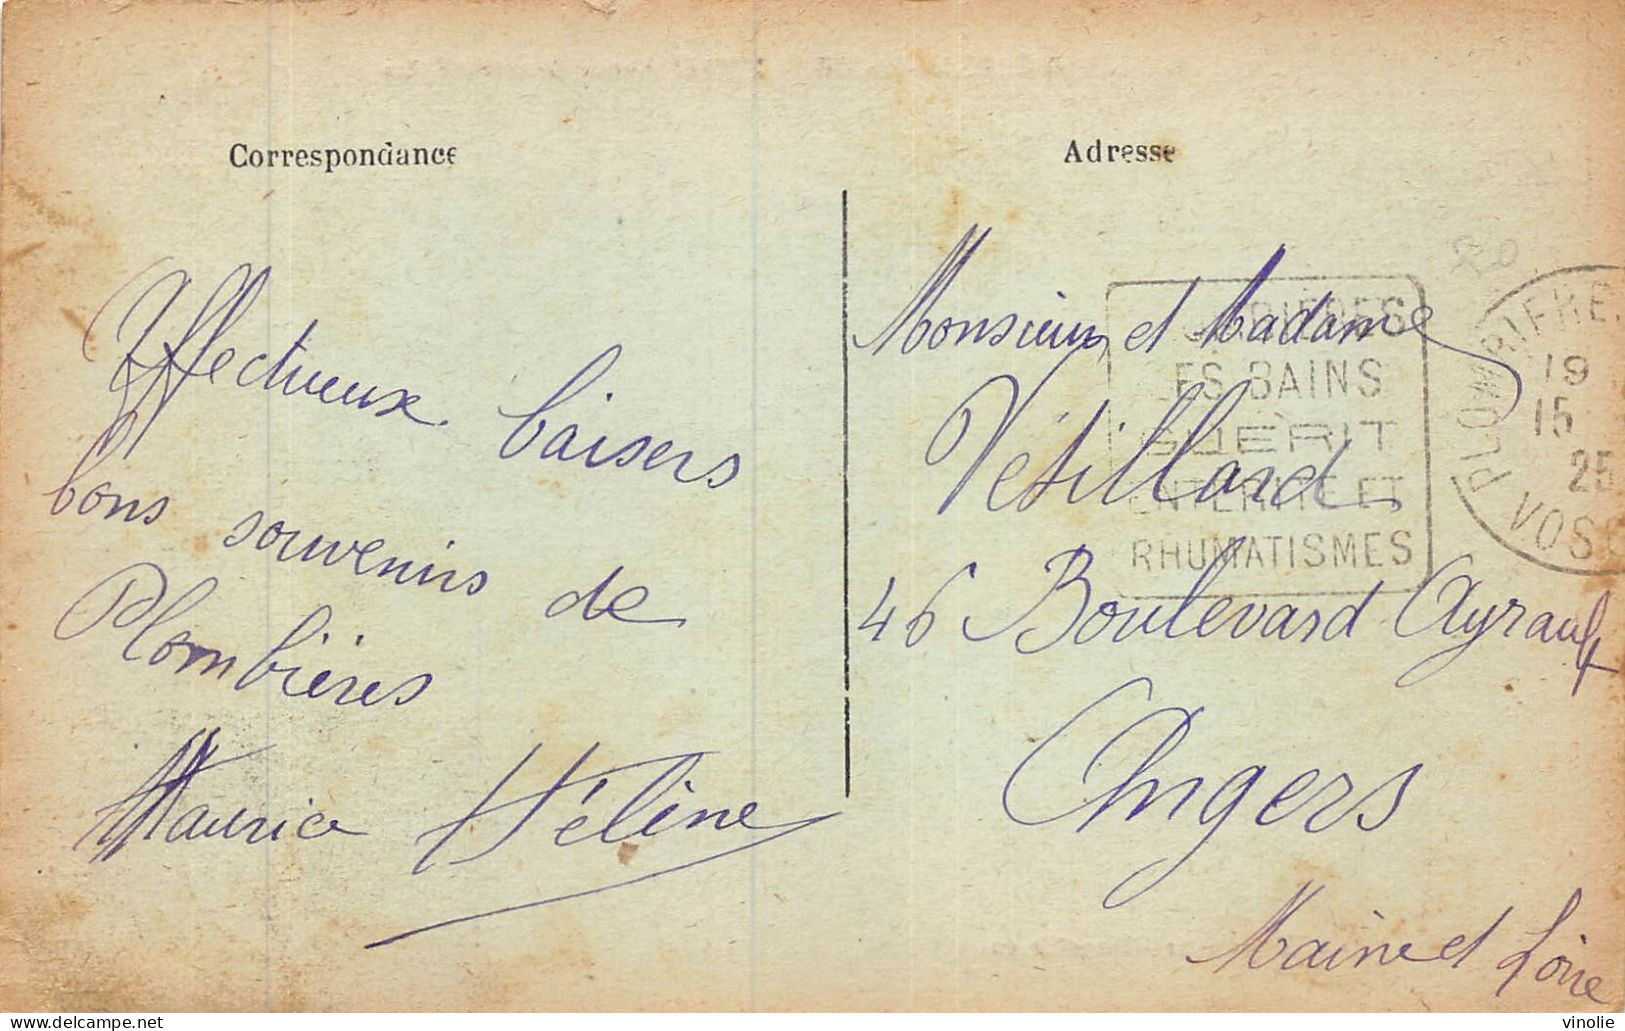 Correspondance
Affectueux baisers
bons souvenirs de
Plombières
Maurice Hélène
Adresse
Monsieur et Madame
Vétillard
46 Boulevard Ayrault
Angers
Maine et Loire
LES BAINS
GUERIT
ENTERITE ET
RHUMATISMES
19
15
25
vinolie